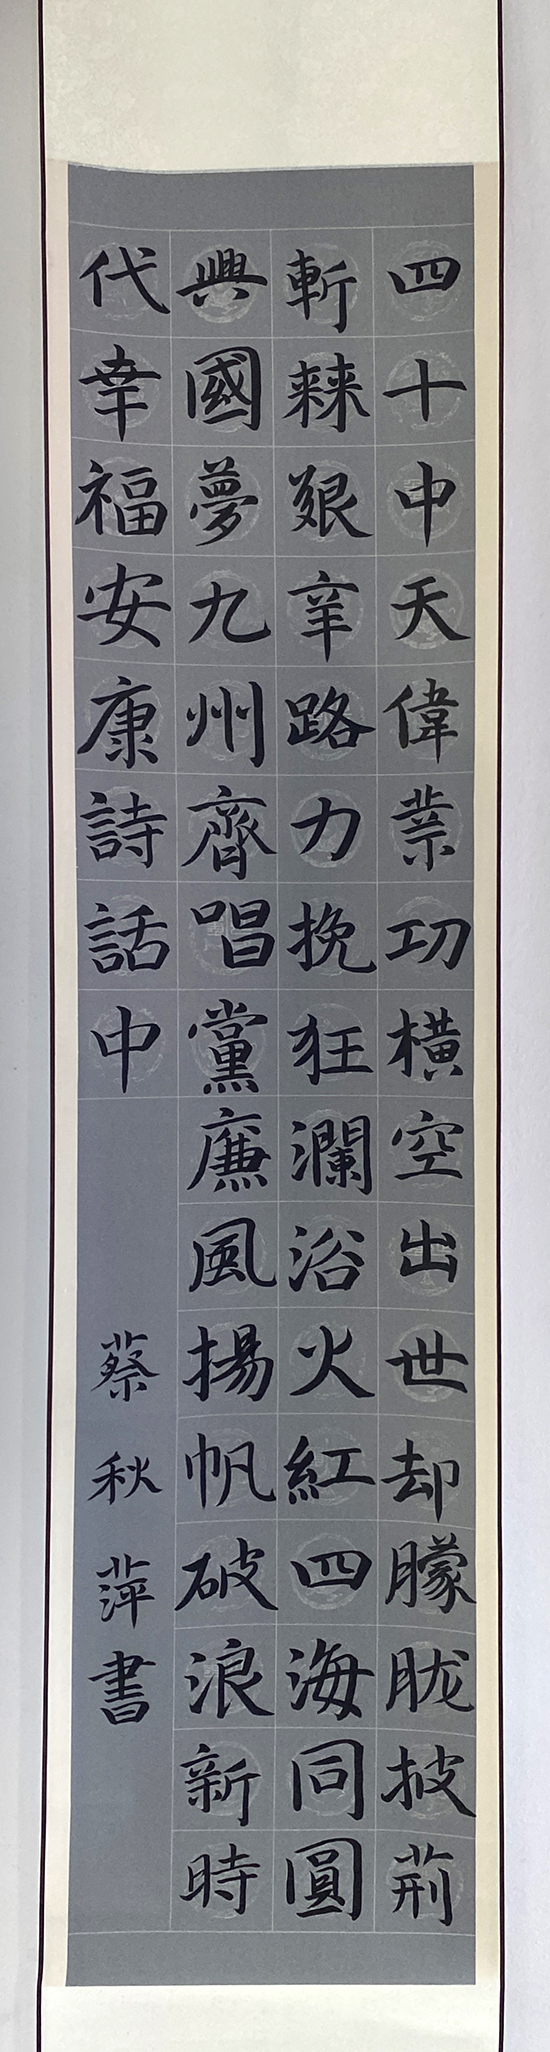 四十中天偉業功橫空出世却朦胧披荊
斬棘艱辛路力挽狂瀾浴火紅四海同圓
興國夢九州齊唱黨廉風揚帆破浪新時
代幸福安康詩話中
蔡秋萍書